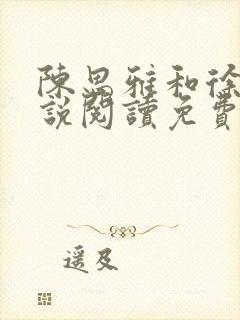 陳思雅和徐
說閱讀免費
遥及